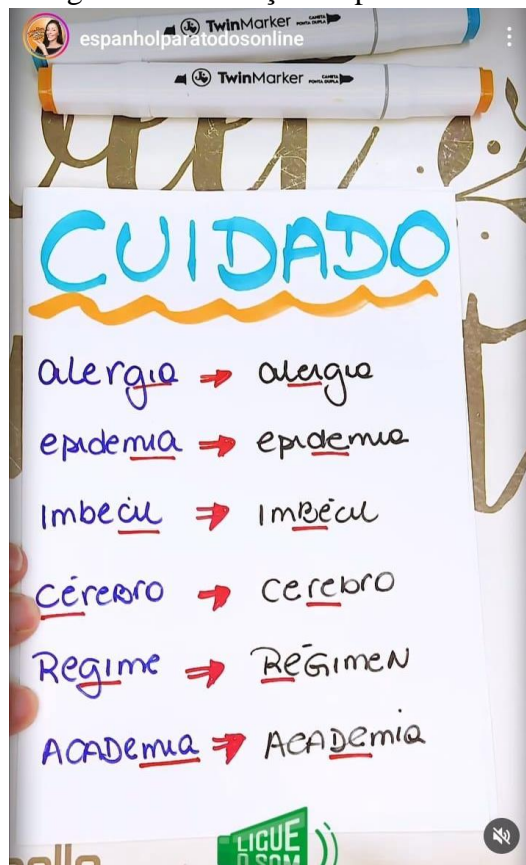 espanholparatodosonline
TwinMarker CANETA PONTA DUPLA
TwinMarker CANETA PONTA DUPLA
CUIDADO
alergia → alergia
epidemia → epidemia
Imbecil → Imbécil
cérebro → cerebro
Regime → RéGimeN
ACADemia → ACADemia
LIGUE
O SOM